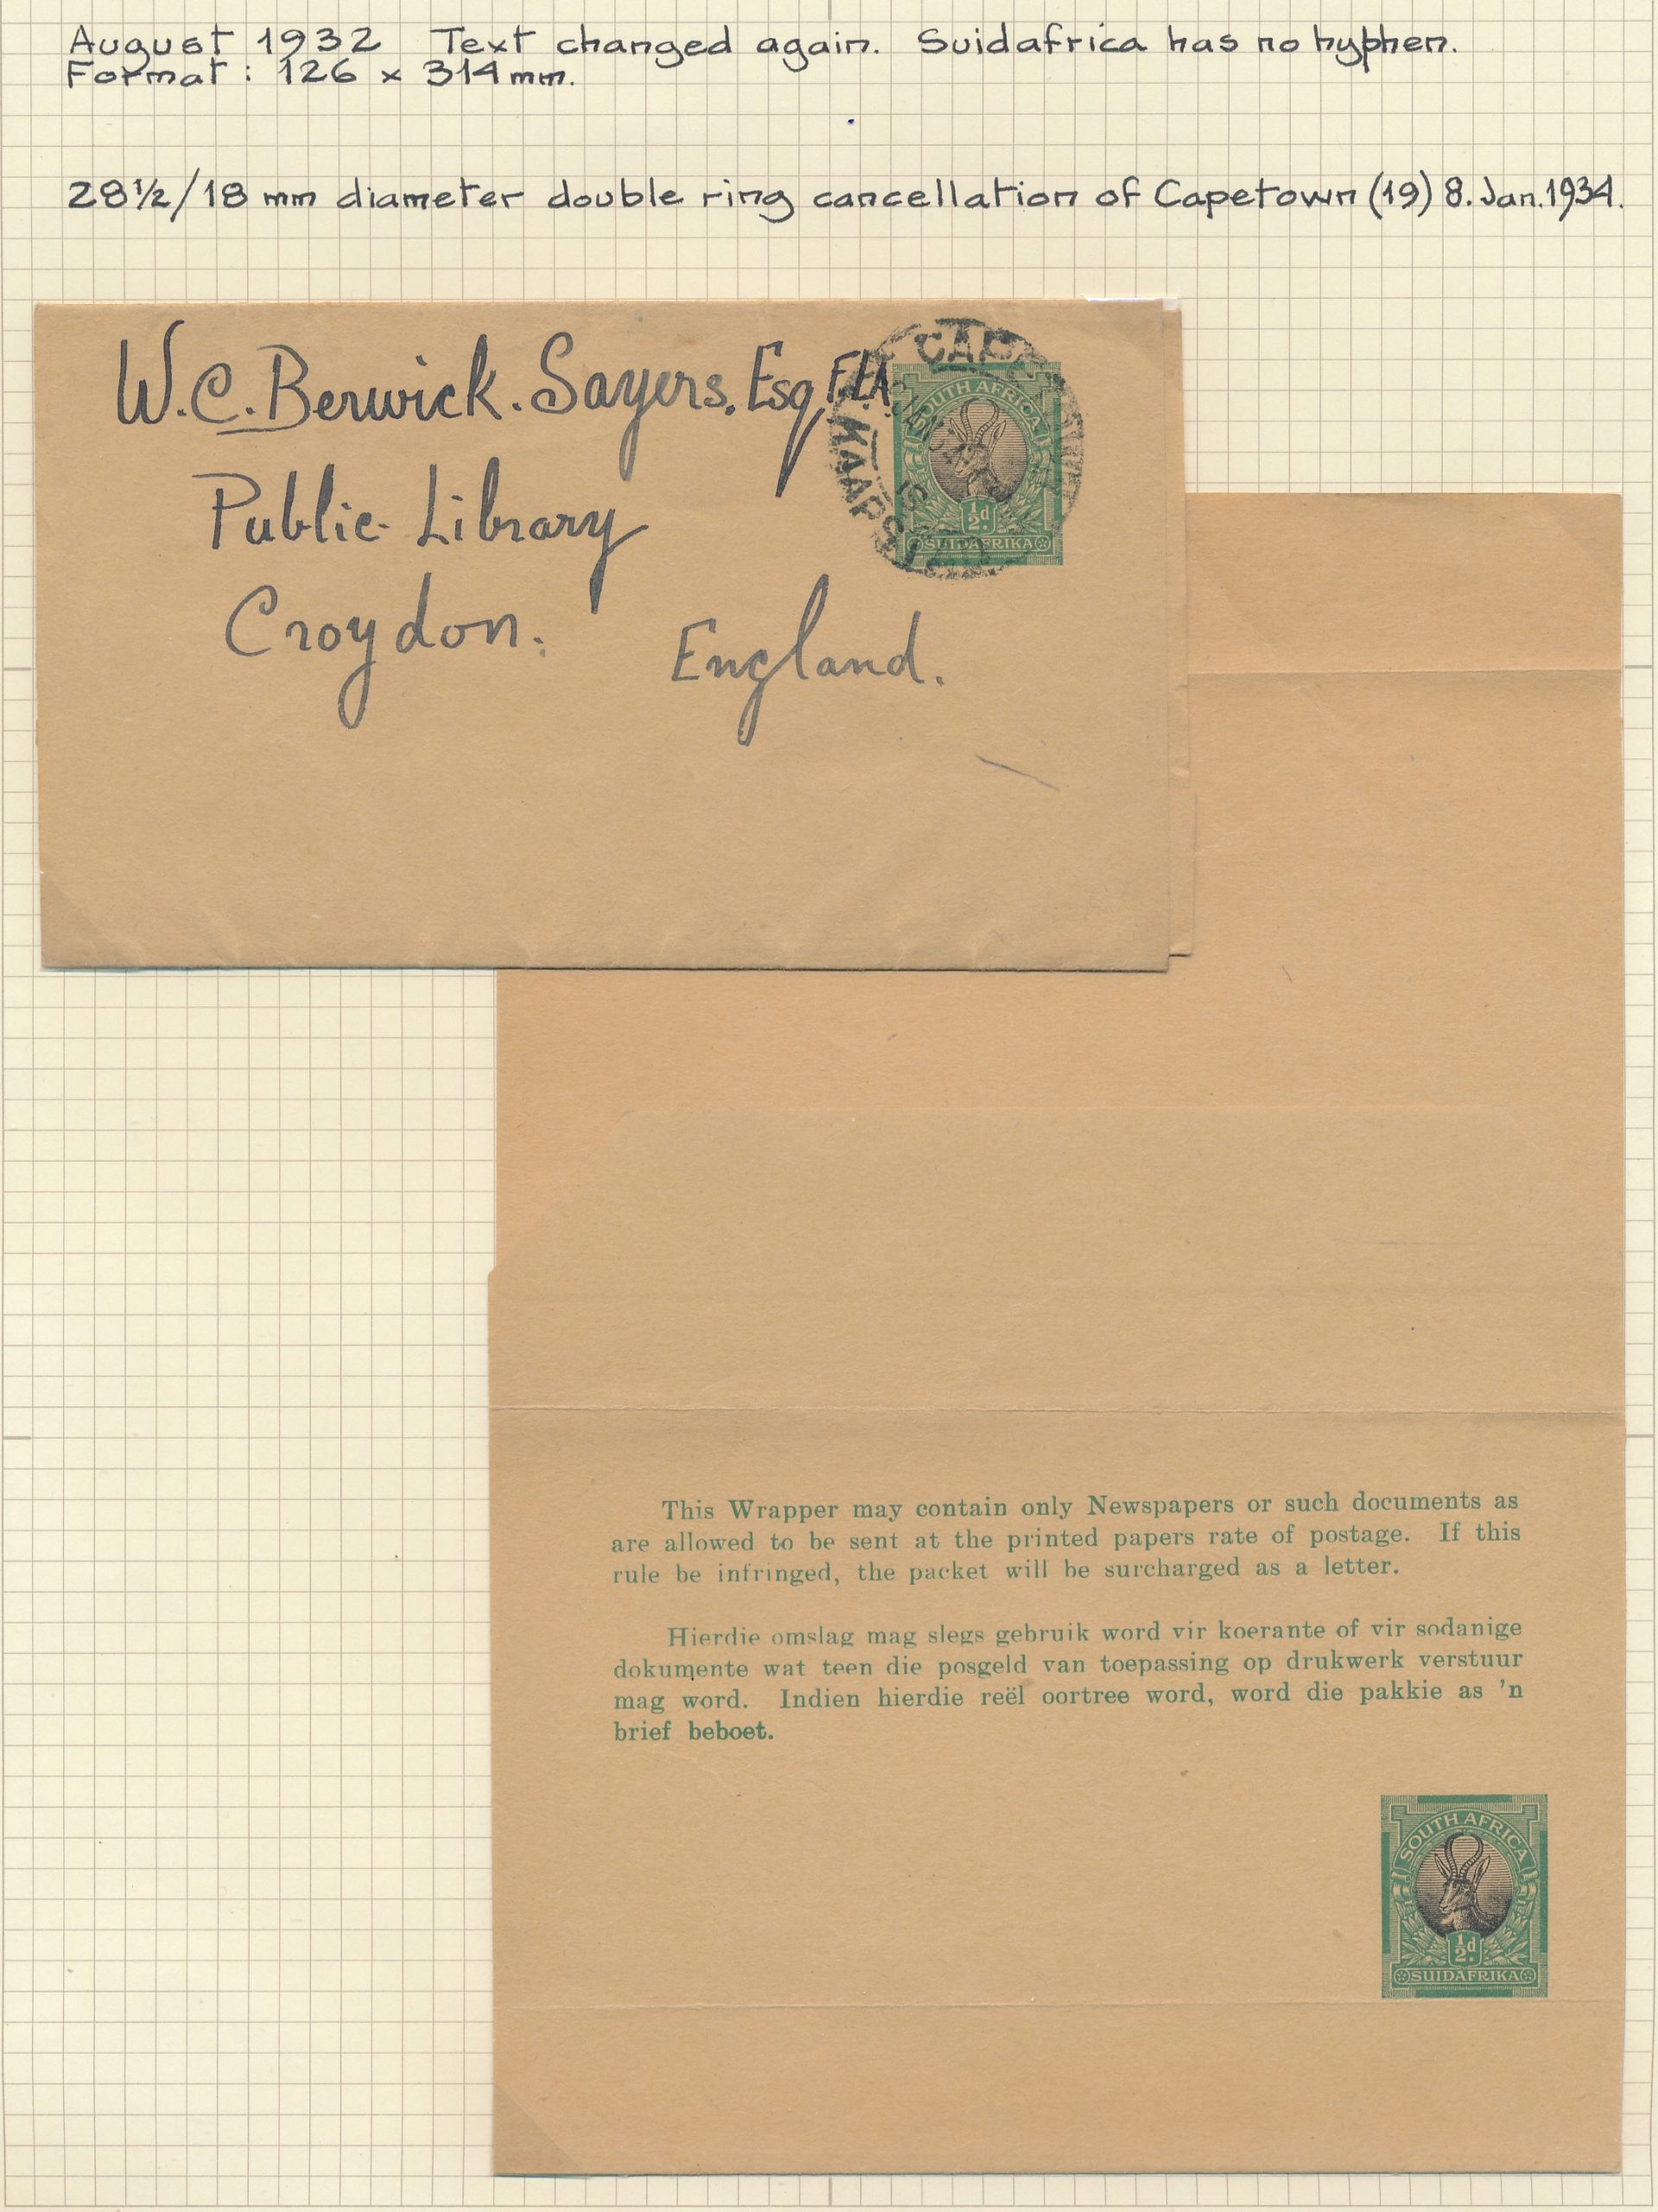 August 1932 Text changed again. Suidafrica has no hyphen.
Format: 126 x 314 mm.
28½/18 mm diameter double ring cancellation of Capetown (19) 8. Jan. 1934.
W.C. Berwick. Sayers. Esq F.L.A.
Public Library
Croydon.
England.
SOUTH AFRICA
½d
SUIDAFRIKA
This Wrapper may contain only Newspapers or such documents as
are allowed to be sent at the printed papers rate of postage. If this
rule be infringed, the packet will be surcharged as a letter.
Hierdie omslag mag slegs gebruik word vir koerante of vir sodanige
dokumente wat teen die posgeld van toepassing op drukwerk verstuur
mag word. Indien hierdie reël oortree word, word die pakkie as 'n
brief beboet.
SOUTH AFRICA
½d.
SUIDAFRIKA